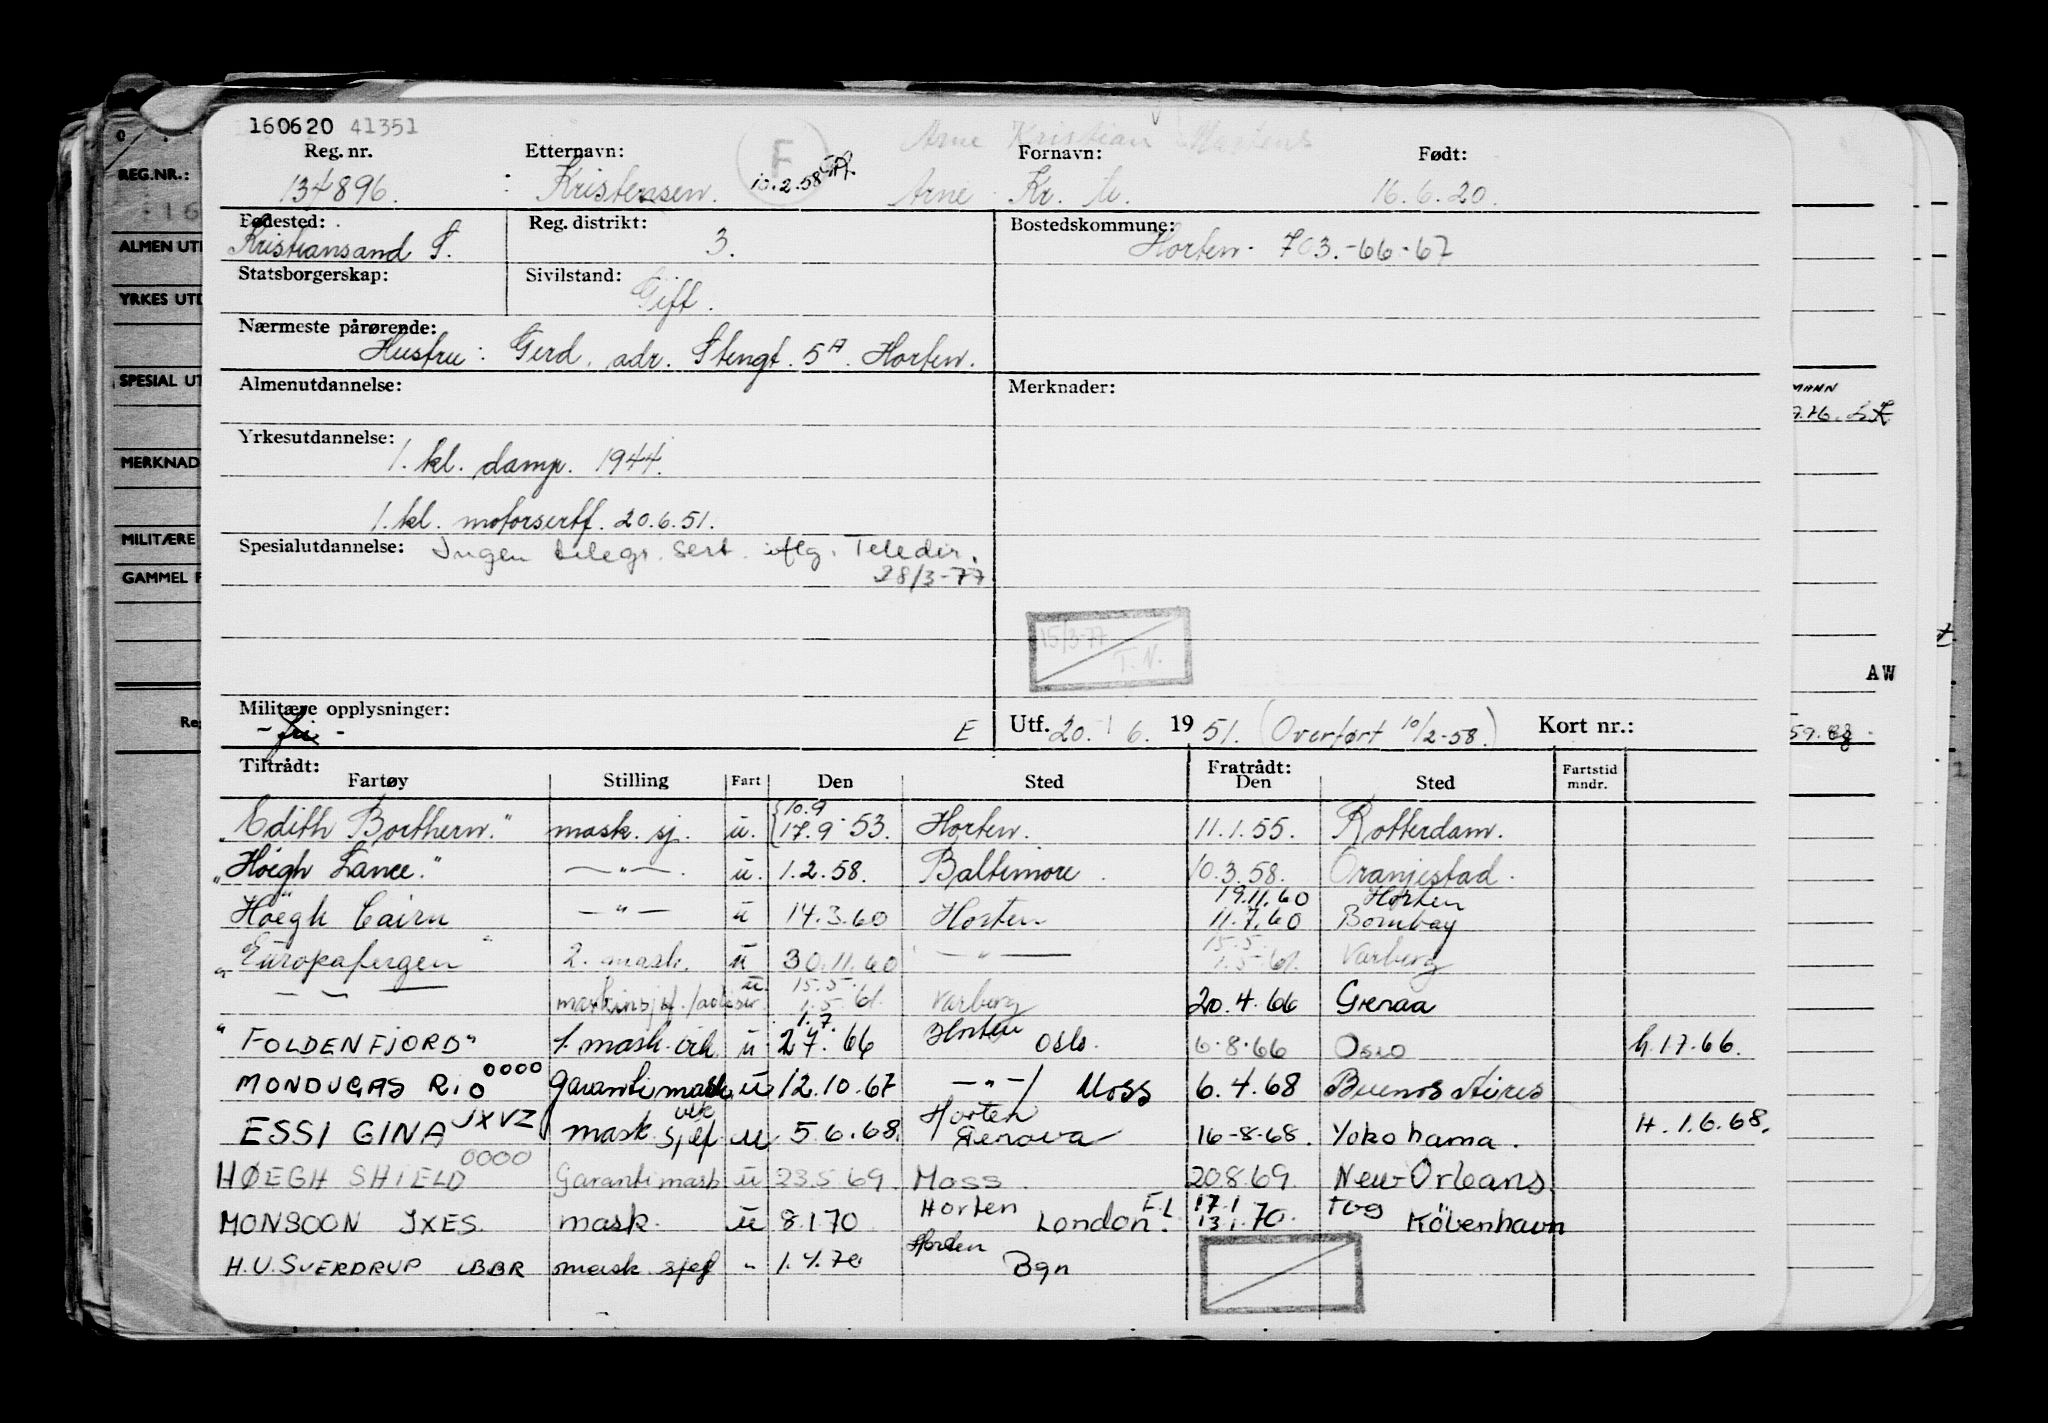 160620 41351
Arne Kristian Martens
Reg. nr. Etternavn: F Fornavn: Født:
134896. Kristensen. 10.2.58 Arne Kr. M. 16.6.20.
Fødested: Reg. distrikt: Bostedskommune:
Kristiansand S. 3. Horten - 703.-66-67
Statsborgerskap: Sivilstand:
Gift.
Nærmeste pårørende:
Hustru: Gerd. adr. Stengt. 5A. Horten.
Almenutdannelse: Merknader:
Yrkesutdannelse:
1. kl. damp. 1944.
1. kl. motorsertf. 20.6.51.
Spesialutdannelse: Ingen telegr. sert. iflg. Teledir.
28/3-77
15/3-77
T. N.
Militære opplysninger:
- fri - E Utf. 20. 6. 1951. (Overført 10/2-58.) Kort nr.:
Tiltrådt: Fratrådt: Fartstid
Fartøy Stilling Fart Den Sted Den Sted mndr.
10.9
"Edith Borthern." mask. sj. u. 17.9.53. Horten. 11.1.55. Rotterdam.
"Höegh Lance." —"— u. 1.2.58. Baltimore. 10.3.58. Oranjestad.
19.11.60 Horten
Höegh Cairn —"— u 14.3.60 Horten 11.7.60 Bombay
15.5.
"Europafergen" 2. mask. u 30.11.60 —"— 1.5.61. Varberg
15.5.
— " — u 1.5.61. Varberg 20.4.66 Grenaa
1.7. Horten
"FOLDENFJORD" 1. mask. u 2.7.66 Oslo. 6.8.66 Oslo h.1.7.66.
MONDUGAS RIO 0000 Garantimask. u 12.10.67 —"—/ Moss 6.4.68 Buenos Aires
vik Horten
ESSI GINA JXVZ mask. sjef u 5.6.68. Genova 16-8-68. Yokohama. H. 1.6.68.
0000
HØEGH SHIELD Garantimask u 23.5.69. Moss. 20.8.69. New-Orleans
Horten F.L 17.1 Tog
MONSOON JXES. mask. u 8.1.70 London. 13.1.70. Köbenhavn
Horten
H.U. SVERDRUP LBBR mask. sjef " 1.4.70 Bgn
REG.NR.:
16
ALMEN UTD
YRKES UTD
SPESIAL UT
MERKNAD
MILITÆRE
GAMMEL F
Reg
MANN
AW